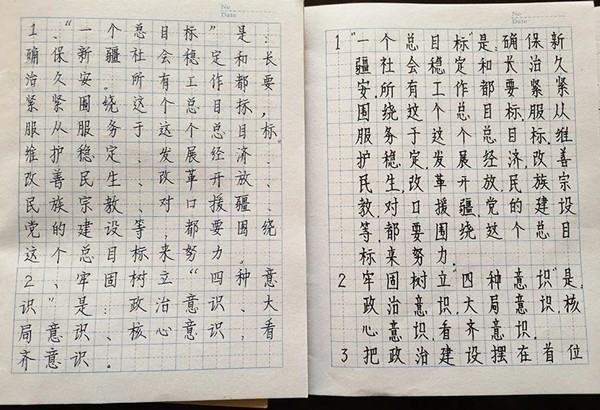 1.“一个总目标”是:
确保新疆社会稳定和长
治久安。所有工作都要,
紧紧围绕这个总目标,
服从服务于这个总目标。
维护稳定、发展经济、
改善民生、改革开放、
民族宗教、对口援疆、
党的建设等,都要围绕
这个总目标来努力。
2、牢固树立“四种意
识”是:政治意识、大
局意识、核心意识,看
齐意识。
1 “一个总目标”是:确保新
疆社会稳定和长治久
安,所有工作都要紧紧
围绕这个总目标,服从
服务于这个总目标.维
护稳定,发展经济,改善
民生,改革开放,民族宗
教,对口援疆,党的建设
等,都要围绕这个总目
标来努力.
2 牢固树立“四种意识”是,
政治意识,大局意识,核
心意识,看齐意识.
3 把政治建设摆在首位
No
Date
No
Date